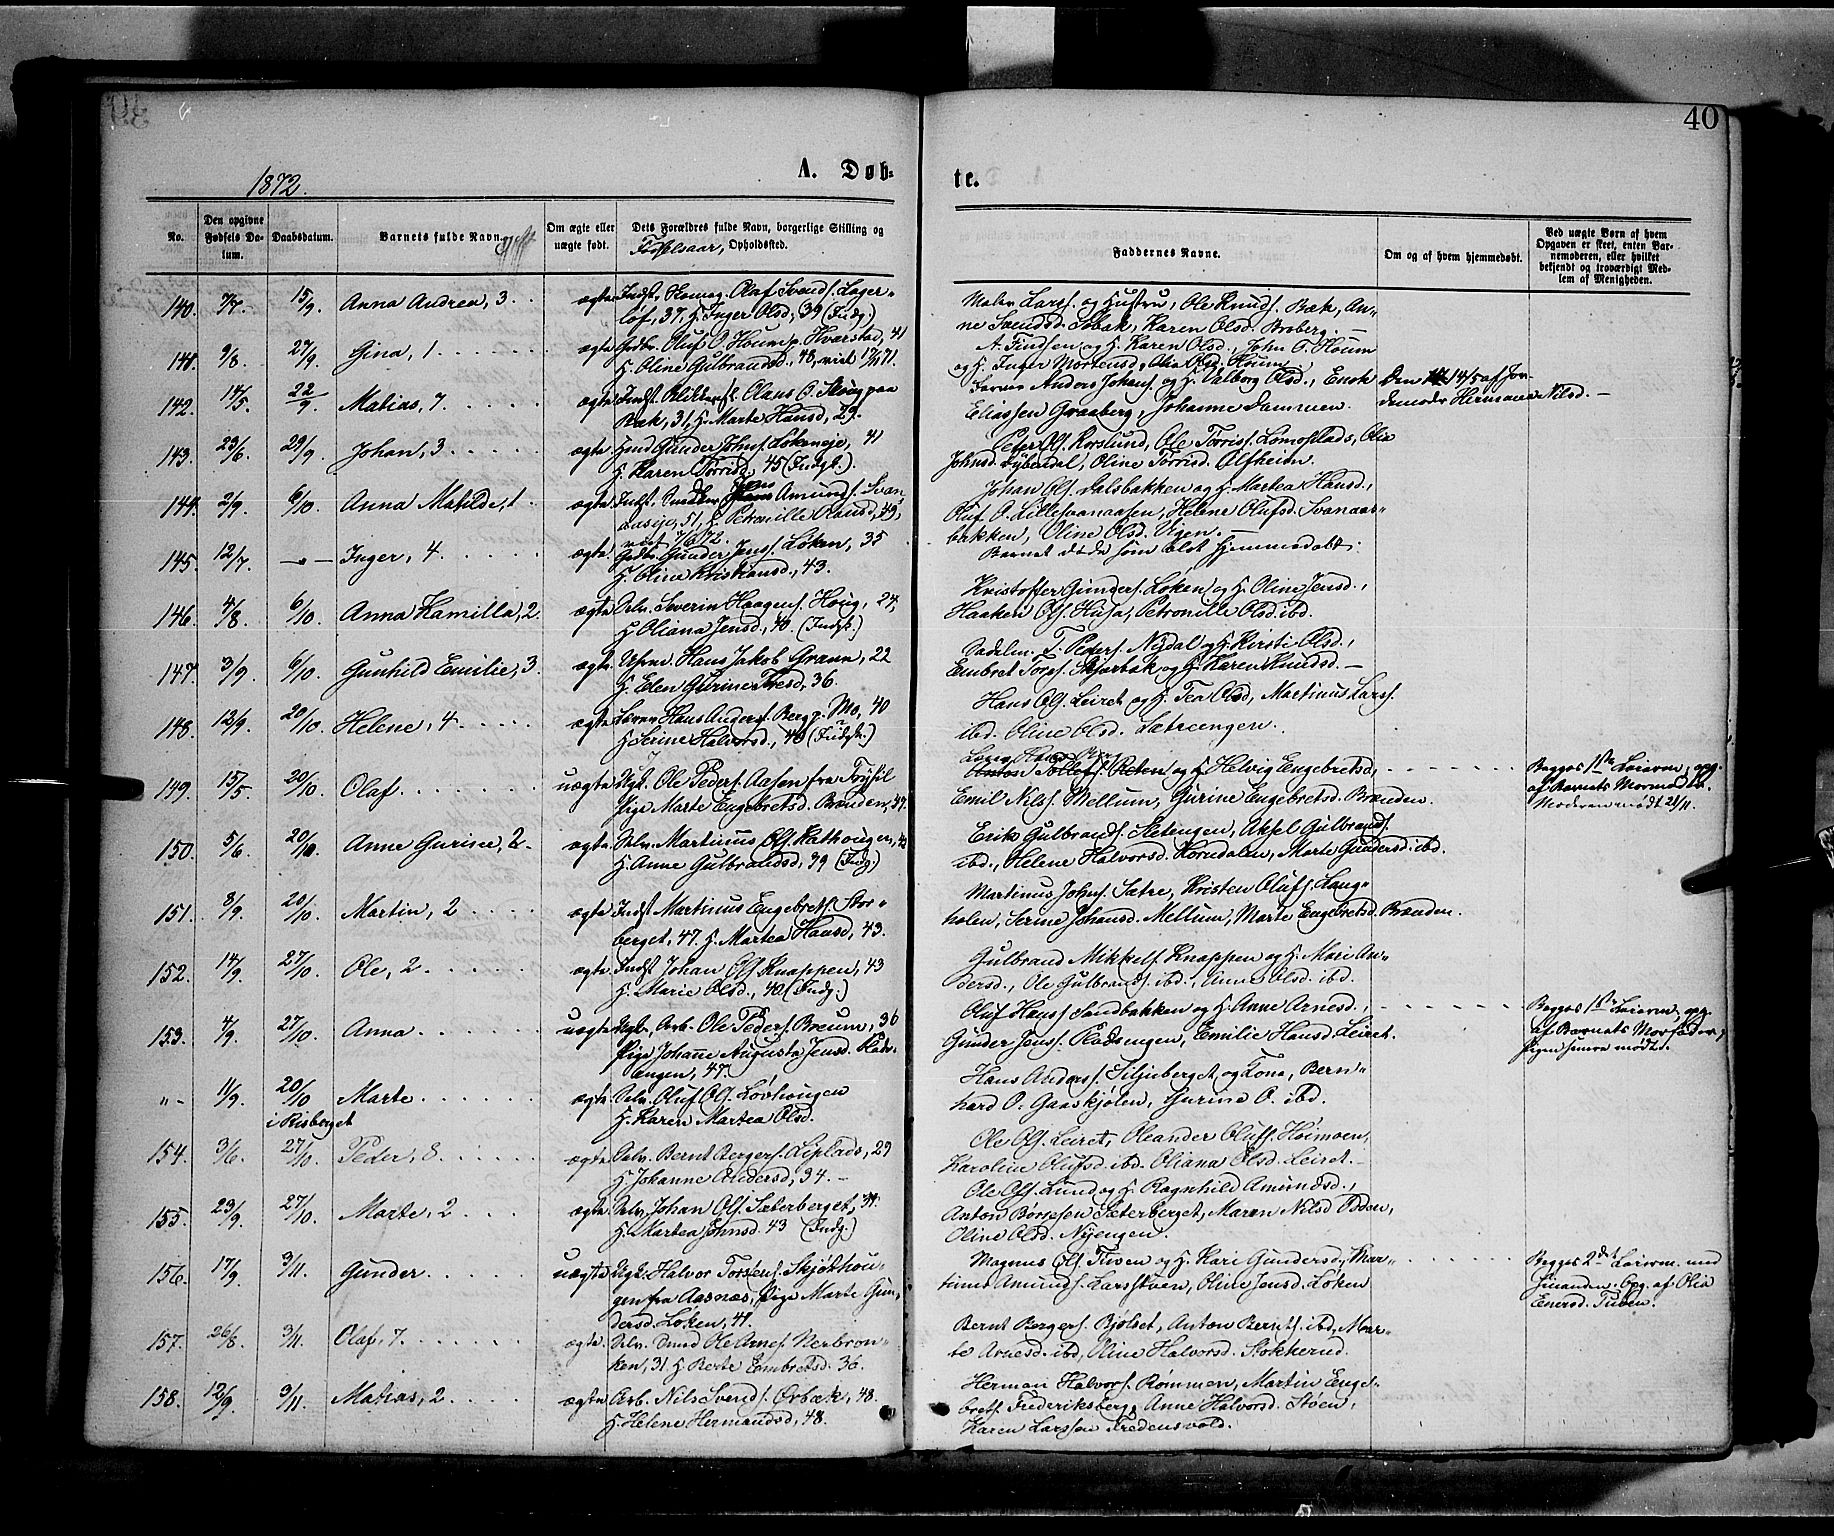 40
1872.
A. Døb-
te.
No.
Den opgivne Fødsels Datum.
Daabsdatum.
Barnets fulde Navn
Om ægte eller uægte født.
Dets Forældres fulde Navn, borgerlige Stilling og
Fødselsaar, Opholdssted.
Faddernes Navne.
Om og af hvem hjemmedøbt.
Ved uægte Børn af hvem Opgaven er skeet, enten Barnemoderen, eller hvilket bekjendt og troværdigt Medlem af Menigheden.
140. 7/7. 15/9. Anna Andrea, 3 ægte Indst. Olaf Svends. Lager-
løf, 37, H. Inger Olsd., 39 (Indg.)
Lars. og Hustru, Ole Knuds. Bæk, An-
ne Svendsd. Sobak, Karen Olsd. Broberg. —
141. 9/8. 27/9. Gina, 1 ægte Gdbr. Oluf O. Houm p. Hvarstad, 41
H. Oline Gulbrandsd., 48, viet 71.
A. Findsen og H. Karen Olsd., John T. Houm
og H. Inger Mortensd., Olia Olsd. Houm
142. 14/5. 22/9. Matias, 7. ægte Indst. Olaus O. Skog paa
Bæk, 31, H. Marte Hansd., 29.
Anders Johans. og H. Valborg Olsd., Enok
Eliassen Graaberg, Johanne Dammen.
Den 14/5 af Jor-
demoder Hermana Nilsd. —
143. 23/6. 29/9. Johan, 3 ægte Gunder Johns. Løkeneje, 41
H. Karen Torrisd., 45 (Indgt.)
Peder Ols. Korslund, Ole Torriss. Lomosplads, Olia
Johnsd. Dybendal, Oline Torrisd. Olfheim.
144. 2/9. 6/10. Anna Matilde, 1 ægte Indst. Snedker Jens Amunds. Svan-
aasejo, 51, H. Petronille Olausd., 49,
viet 7/6 72.
Johan Ols. Dalsbakken og H. Martea Hansd.,
Oluf O. Lillesvanaasen, Helene Olufsd. Svanaas-
bakken, Oline Olsd. Vigen. —
145. 12/7. —"— Inger, 4. ægte Gdbr. Gunder Jens. Løken, 35
H. Oline Kristiansd., 43.
Barnet døde som blot hjemmedøbt.
146. 4/8. 6/10. Anna Kamilla, 2. ægte Selv. Severin Haagens. Houg, 24,
H. Oliana Jensd., 40. (Indgt.)
Kristoffer Gunders. Løken og H. Oline Jensd.,
Haaken Ols. Husa, Petronille Olsd. ibd.
147. 3/9. 6/10. Gunhild Emilie, 3. ægte Hans Jakob Grann, 22
H. Elen Gurine Toresd., 36.
T. Peders. Nydal og H. Kirsti Olsd.,
Embret Torps. Skjærbæk og H. Karen Knudsd. —
148. 12/9. 20/10. Helene, 4. ægte Hans Anders. Berg p. Mo, 40
H. Serine Halvorsd., 40 (Indgt.)
Hans Ols. Leiret og H. Tea Olsd., Martinus Larss.
ibd. Oline Olsd. Sætreengen.
149. 15/5. 20/10. Olaf uægte Ugk. Ole Peders. Aasen fra Trysil
Pige Marte Engebretsd. Brænden, 47.
og H. Helvig Engebretsd.,
Emil Nilss. Mellum, Gurine Engebretsd. Brænden.
Begges 1ste Leierm., opg.
af Barnets Mormoder.
Moderen mødt 21/11.
150. 5/6. 20/10. Anne Gurine, 2. ægte Selv. Martinus Ols. Kathougen, 42
H. Anne Gulbrandsd., 39 (Indg.)
Erik Gulbrands. Sætengen, Aksel Gulbrands.
ibd., Helene Halvorsd. Korndalen, Marte Gundersd. ibd.
151. 8/9. 20/10. Martin, 2 ægte Indst. Martinus Engebrets. Stor-
berget, 47. H. Martea Hansd., 43.
Martinus Johns. Sætre, Kristen Olufs. Laug-
holen, Serine Johansd. Mellum, Marte Engebretsd. Brænden.
152. 14/9. 27/10. Ole, 2 ægte Indst. Johan Ols. Knappen, 43
H. Marie Olsd., 40 (Indg.)
Gulbrand Mikkels. Knappen og H. Mari An-
dersd., Ole Gulbrands. ibd., Anne Olsd. ibd.
153. 4/9. 27/10. Anna uægte Ugk. Arb. Ole Peders. Breum, 36
Pige Johanne Augusta Jensd. Plads-
engen, 47.
Oluf Hans. Sandbakken og H. Anne Arnesd.,
Gunder Jens. Pladsengen, Emilie Hansd. Leiret.
Begges 1ste Leierm., opg.
af Barnets Morfader,
Pigen senere mødt.
"- 11/9. 20/10 i Risberget Marte ægte Selv. Oluf Ols. Løvhougen
H. Karen Martea Olsd.
Hans Anders. Siljuberget og Kona, Bern-
hard O. Gaaskjølen, Gurine O. ibd.
154. 3/6. 27/10. Peder, 8. ægte Selv. Bernt Bergers. Liplads, 29
H. Johanne Pedersd., 34. —
Ole Ols. Leiret, Oleander Olufs. Høimoen,
Karoline Olufsd. ibd. Oliana Olsd. Leiret. —
155. 23/9. 27/10. Marte, 2 ægte Selv. Johan Ols. Sæterberget, 41.
H. Martea Johnsd. 43 (Indg.)
Ole Ols. Lund og H. Ragnhild Amundsd.,
Anton Børresen Sæterberget, Maren Nilsd. Odden,
Oline Olsd. Nyengen.
156. 17/9. 3/11. Gunder uægte Ugk. Halvor Torstens. Skjøthou-
gen fra Aasnæs, Pige Marte Gun-
dersd. Løken, 41.
Magnus Ols. Tuven og H. Kari Gundersd., Mar-
tinus Amunds. Larsstuen, Oline Jensd. Løken
Begges 2det Leierm. med
hinanden. Opg. af Olia
Enersd. Tuven.
157. 26/8. 3/11. Olaf, 7. ægte Selv. Smed Ole Arnes. Nerbron-
ken, 31. H. Berte Embretsd. 36.
Bernt Bergers. Bjølset, Anton Bernts. ibd., Mar-
te Arnesd. ibd., Oline Halvorsd. Stokkerud.
158. 12/9. 3/11. Matias, 2 ægte Arb. Nils Svends. Ørbæk, 48.
H. Helene Hermandsd., 48.
Herman Halvors. Rømmen, Martin Enge-
brets. Frederiksberg, Anne Halvorsd. Støen,
Karen Larssen Fredensvold.